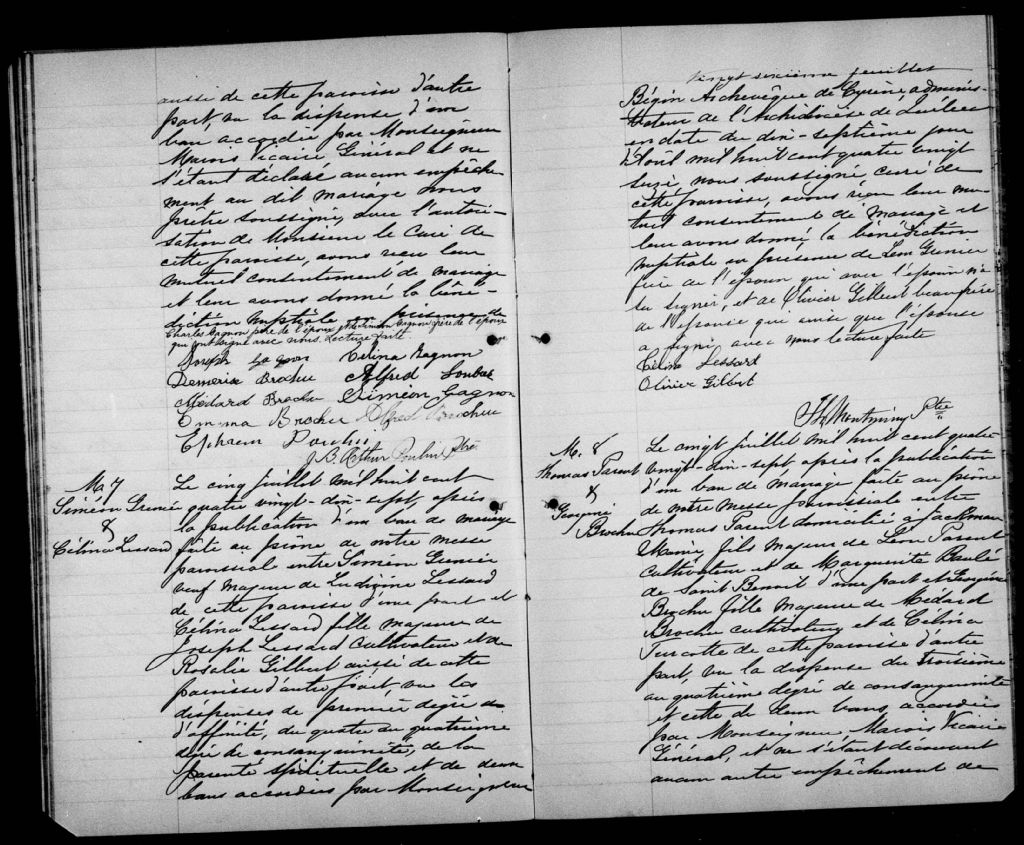 aussi de cette paroisse d'autre
part, vu la dispense d'un
ban accordée par Monseigneur
Marois Vicaire Général et ne
s'étant déclaré aucun empêche
ment au dit mariage nous
prêtre soussigné, avec l'autori-
sation de Monsieur le Curé de
cette paroisse, avons reçu leur
mutuel consentement de mariage
et leur avons donné la béné-
diction nuptiale en présence de
Charles Gagnon père de l'époux et de Siméon Gagnon frère de l'époux
qui ont signé avec nous. Lecture faite.
Joseph Gagnon Célina Gagnon
Demerise Brochu Alfred
Médard Brochu Siméon Gagnon
Emma Brochu Alfred Brochu
Ephrem
J. B. Arthur Poulin Ptre
M. 7
Siméon Grenier
&
Célina Lessard
Le cinq juillet mil huit cent
quatre vingt-dix-sept, après
la publication d'un ban de mariage
faite au prône de notre messe
paroissial entre Siméon Grenier
veuf majeur de Ludivine Lessard
de cette paroisse d'une part et
Célina Lessard fille majeure de
Joseph Lessard Cultivateur et de
Rosalie Gilbert aussi de cette
paroisse d'autre part, vu les
dispenses de premier dégré
d'affinité, du quatre au quatrième
dégré de consanguinité, de la
parenté spirituelle et de deux
bans accordées par Monseigneur
vingt sixième feuillet
Bégin Archevêque de Cyrène, adminis-
trateur de l'Archidiocèse de Québec
en date du dix-septième jour
d'Août mil huit cent quatre vingt
seize nous soussigné curé de
cette paroisse, avons reçu leur mu-
tuel consentement de mariage et
leur avons donné la bénédiction
nuptiale en présence de Léon Grenier
frère de l'époux qui avec l'époux n'a
su signer, et de Olivier Gilbert beau frère
de l'épouse qui ainsi que l'épouse
a signé avec nous lecture faite
Célina Lessard
Olivier Gilbert
Th. Montminy Ptre
M. 8
Thomas Parent
&
Georgina
Brochu
Le cinq juillet mil huit cent quatre
vingt-dix-sept après la publication
d'un ban de mariage faite au prône
de notre messe paroissiale entre
Thomas Parent domicilié à Jackman
Maine, fils majeur de Léon Parent
cultivateur et de Marguerite Boulé
de Saint Benoit d'une part et Georgina
Brochu fille majeure de Médard
Brochu cultivateur et de Célina
Turcotte de cette paroisse d'autre
part, vu la dispense du troisième
au quatrième dégré de consanguinité
et cette de deux bans, accordées
par Monseigneur Marois Vicaire
Général, et ne s'étant découvert
aucun autre empêchement de